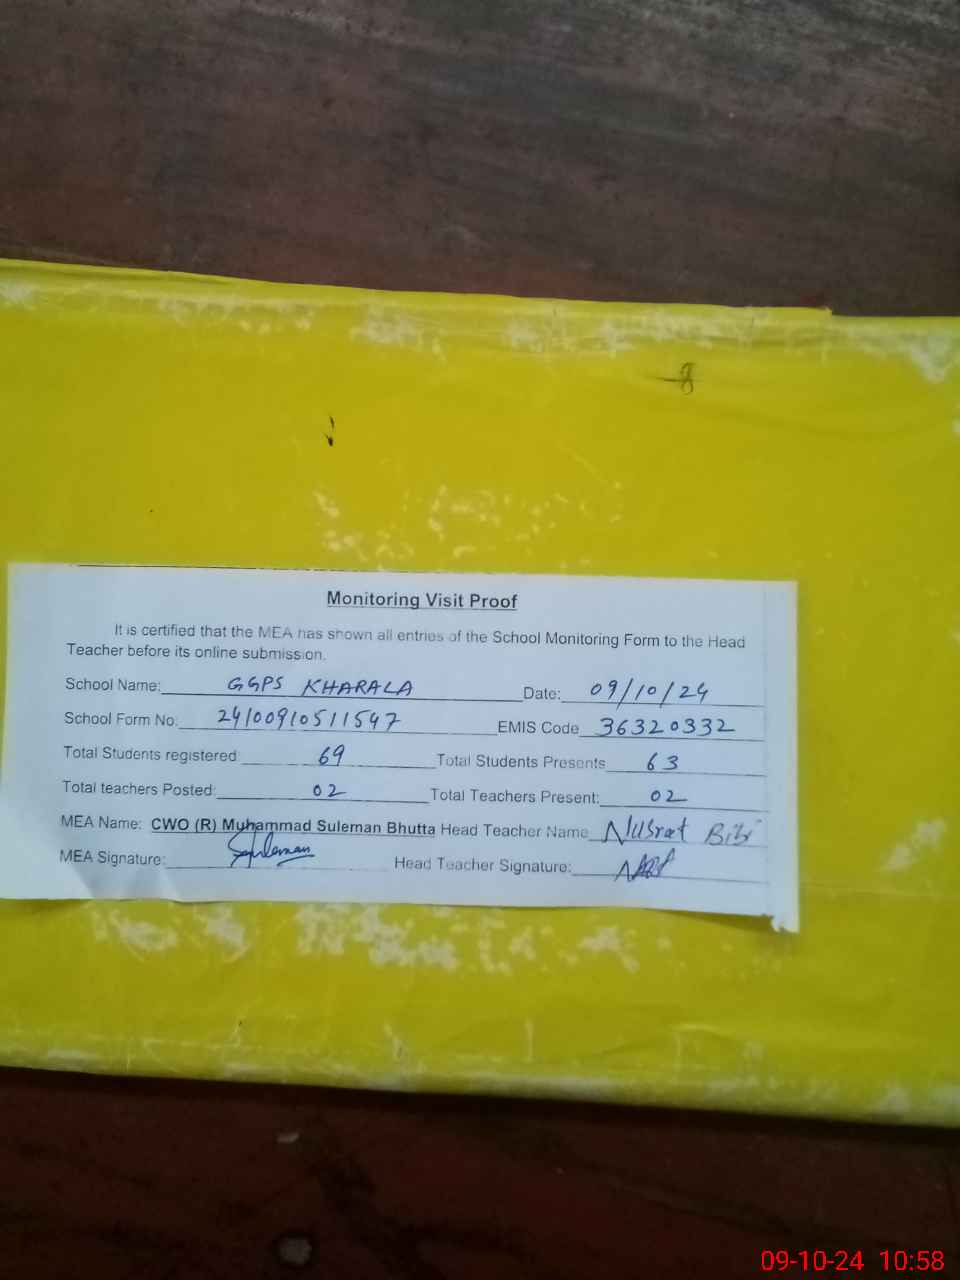 8
Monitoring Visit Proof
It is certified that the MEA has shown all entries of the School Monitoring Form to the Head
Teacher before its online submission.
School Name: GGPS KHARALA Date: 09/10/24
School Form No: 24100910511547 EMIS Code 36320332
Total Students registered: 69 Total Students Presents 63
Total teachers Posted: 02 Total Teachers Present: 02
MEA Name: CWO (R) Muhammad Suleman Bhutta Head Teacher Name Nusrat Bibi
MEA Signature: Suleman Head Teacher Signature:
09-10-24 10:58